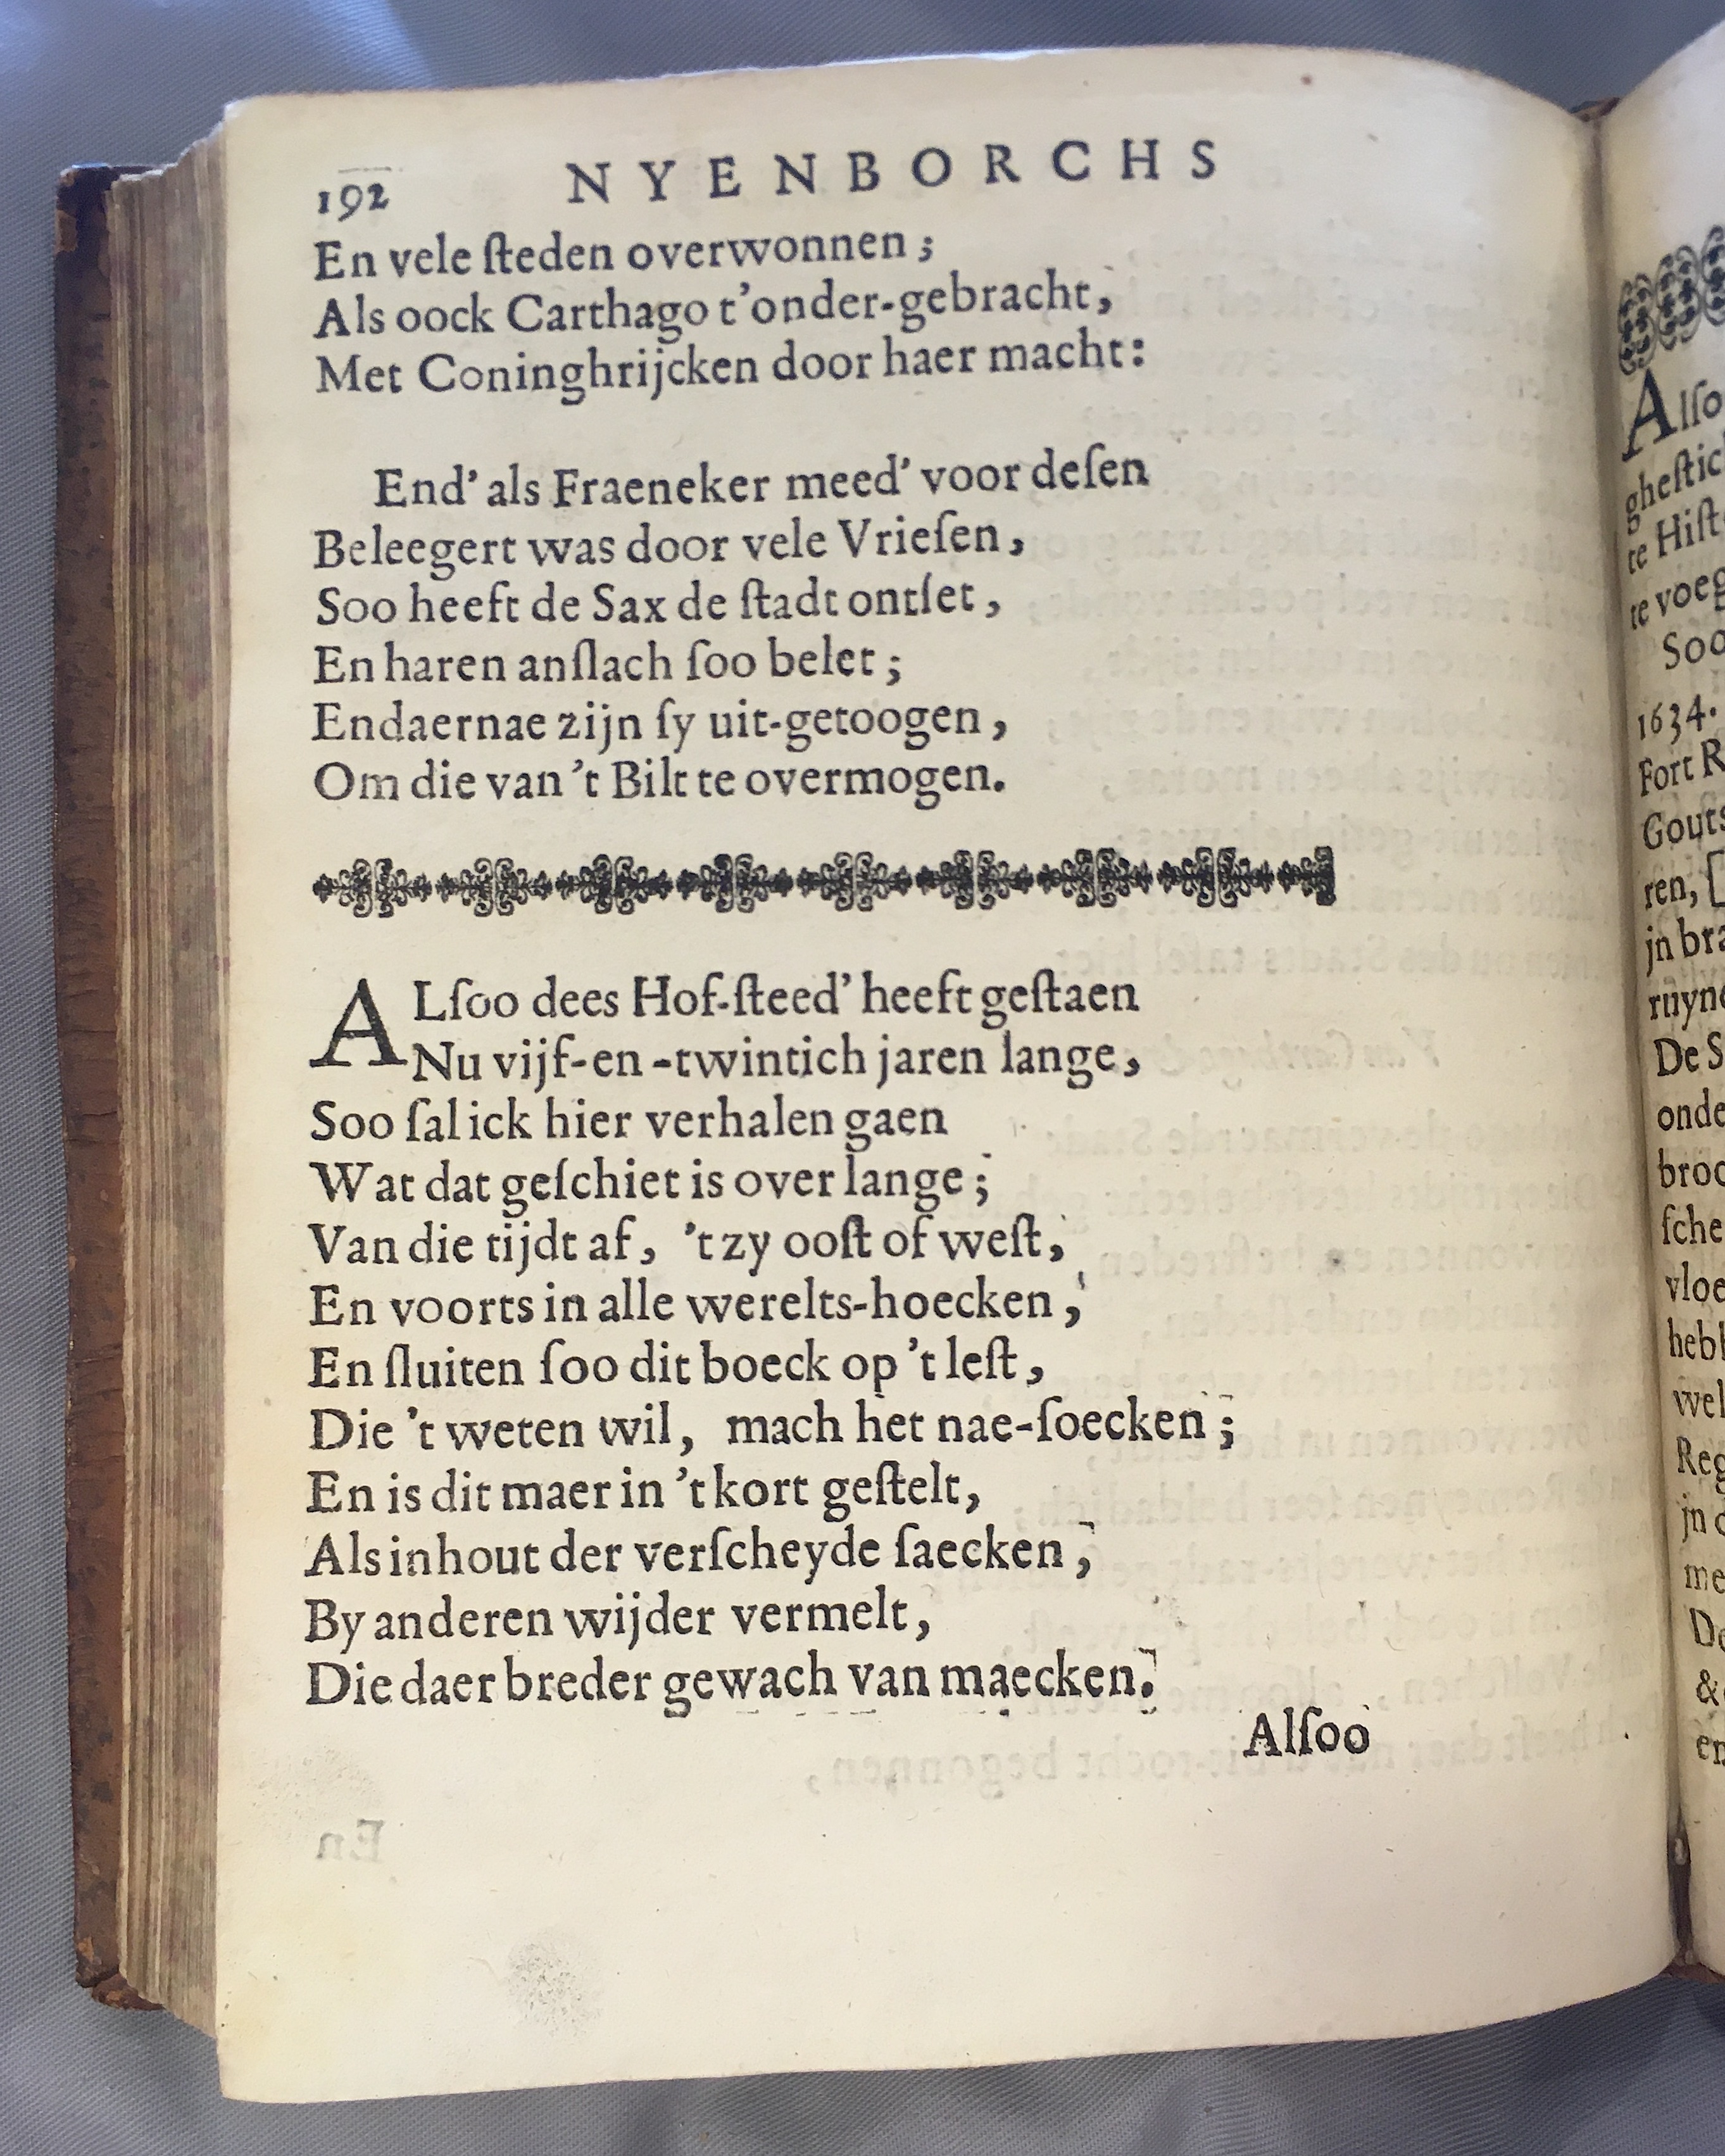 192 NYENBORCHS
En vele ſteden overwonnen;
Als oock Carthago t'onder-gebracht,
Met Coninghrijcken door haer macht:
End' als Fraeneker meed' voor deſen
Beleegert was door vele Vrieſen,
Soo heeft de Sax de ſtadt ontſet,
En haren anſlach ſoo belet;
Endaernae zijn ſy uit-getoogen,
Om die van 't Bilt te overmogen.
ALſoo dees Hof-ſteed' heeft geſtaen
Nu vijf-en-twintich jaren lange,
Soo ſal ick hier verhalen gaen
Wat dat geſchiet is over lange;
Van die tijdt af, 't zy ooſt of weſt,
En voorts in alle werelts-hoecken,
En ſluiten ſoo dit boeck op 't leſt,
Die 't weten wil, mach het nae-ſoecken;
En is dit maer in 't kort geſtelt,
Als inhout der verſcheyde ſaecken,
By anderen wijder vermelt,
Die daer breder gewach van maecken.
Alſoo
Alſo
gheſtic
te Hiſt
te voeg
Soo
1634.
Fort R
Gouts
ren,
jn bra
ruyn
De S
onde
broc
ſche
vloe
hebb
wel
Reg
jn
me
De
&
en